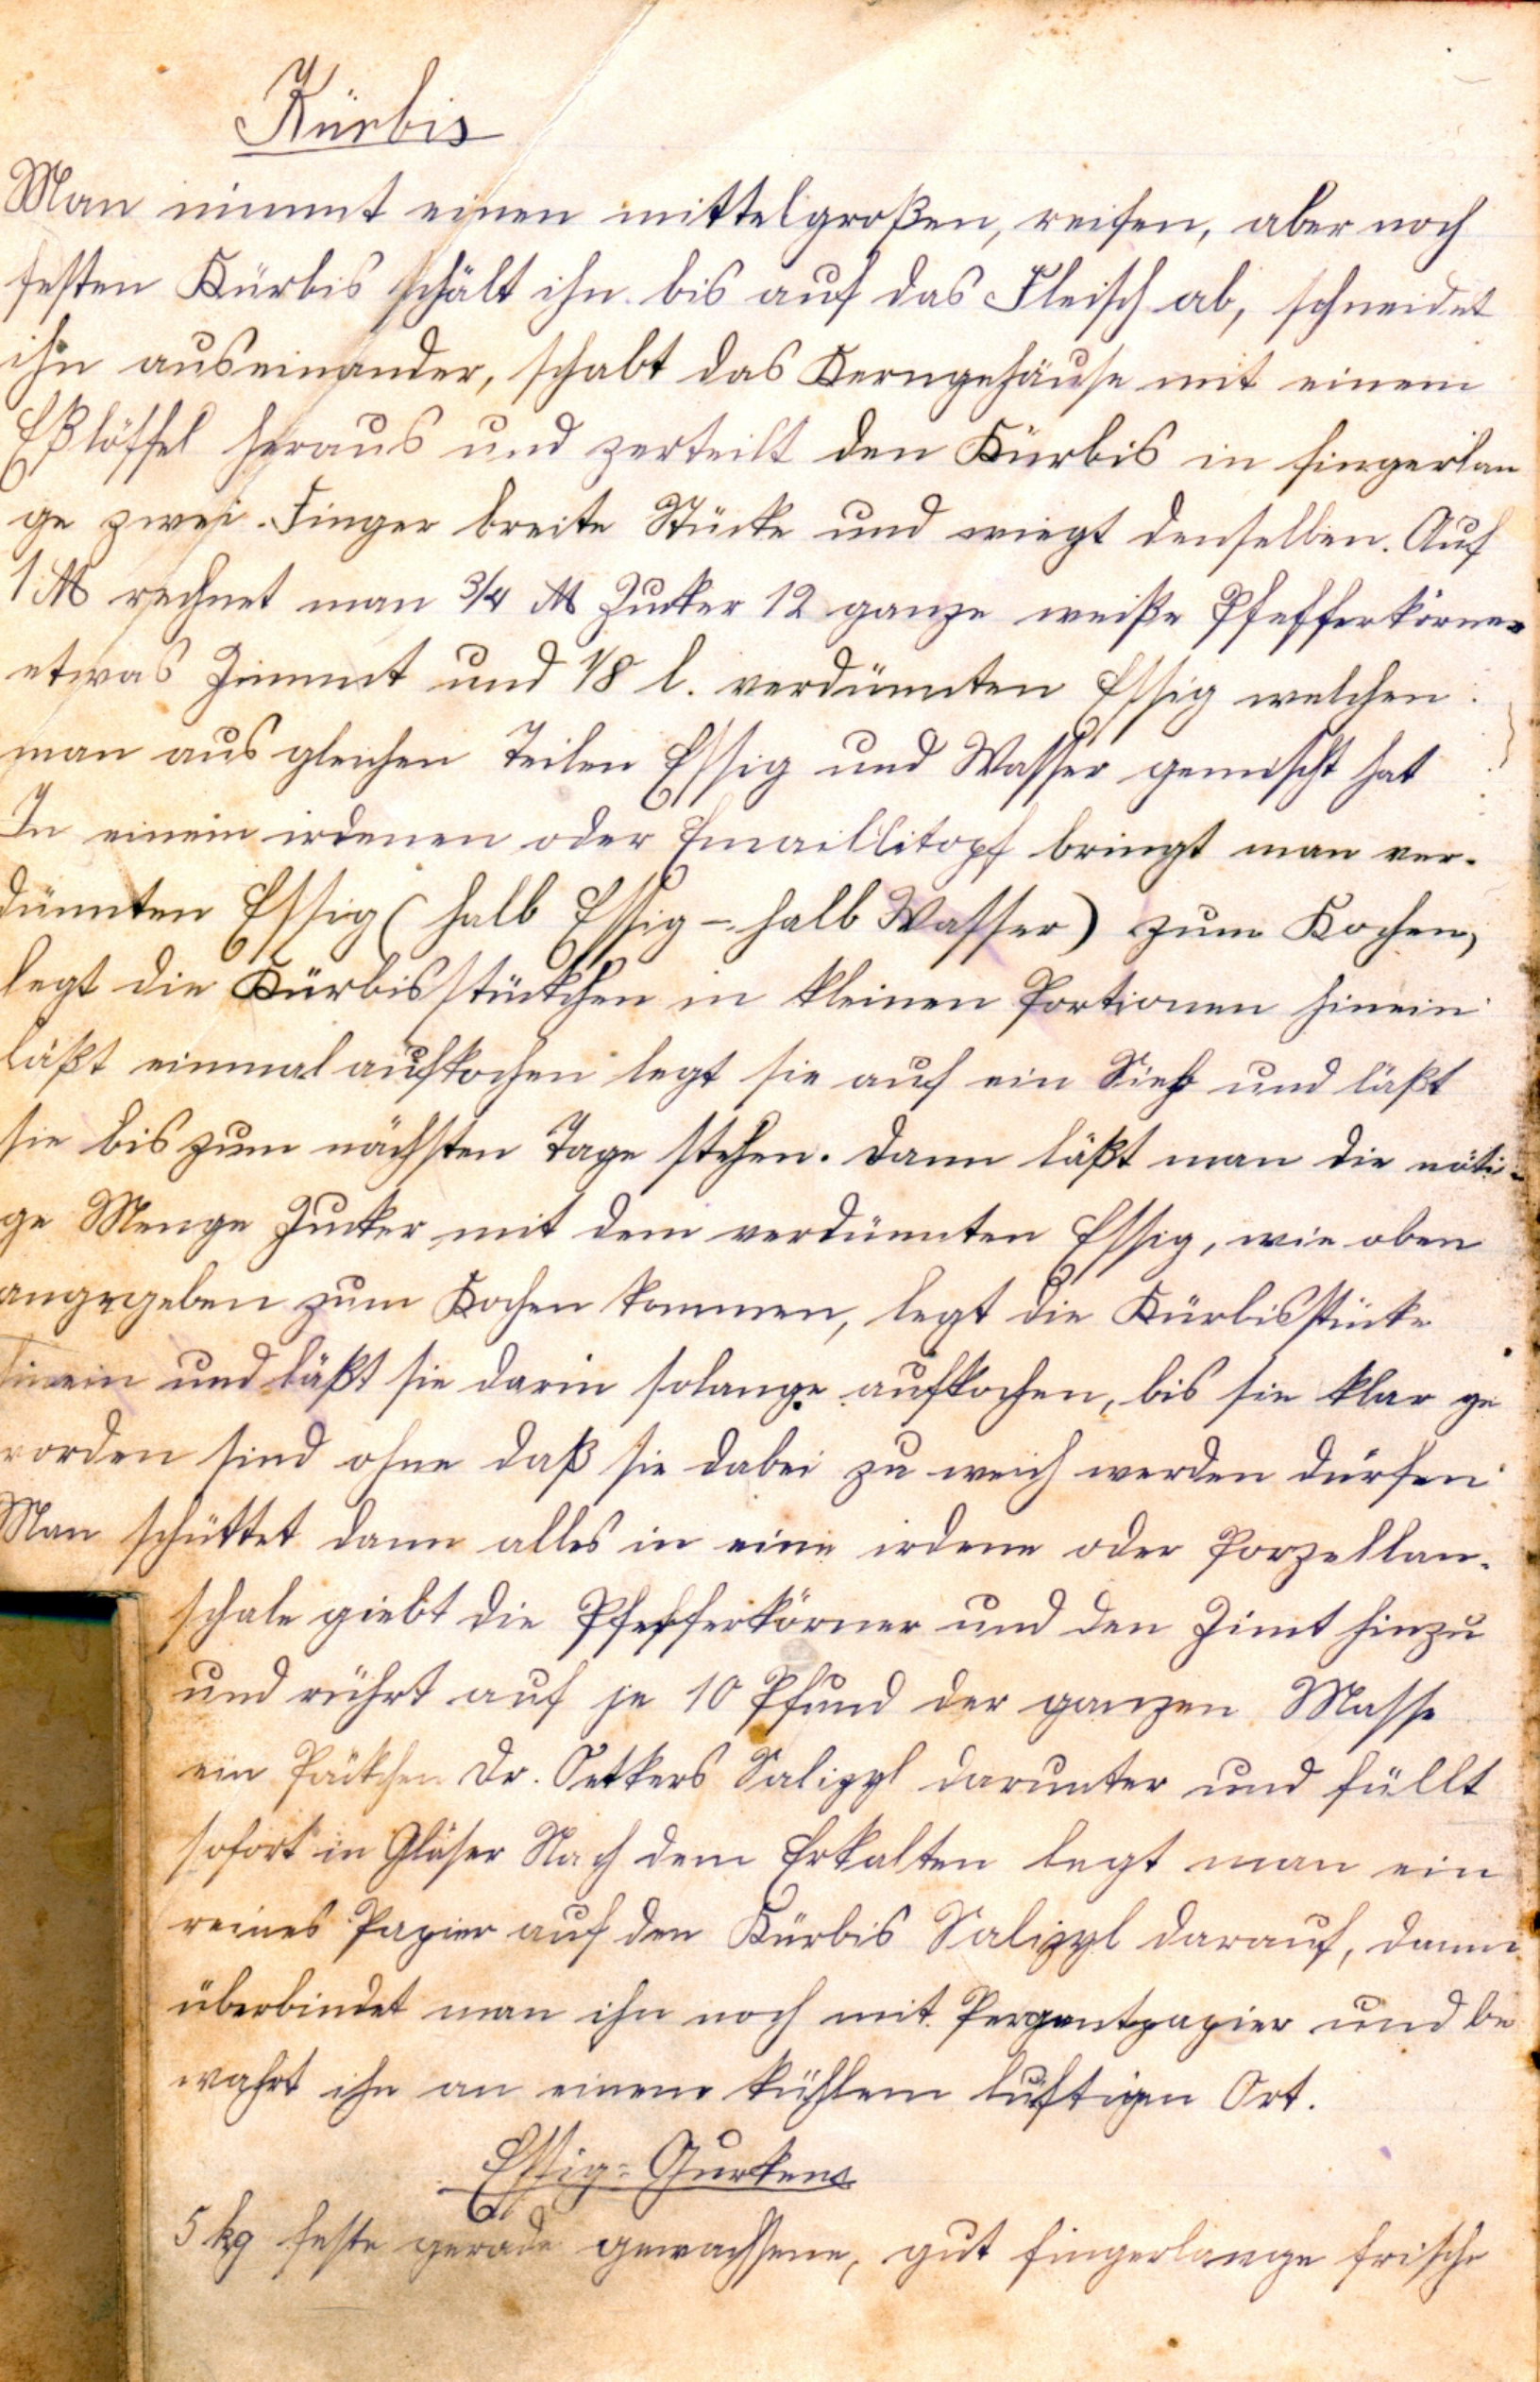 Kürbis
Man nimmt einen mittelgroßen, reifen, aber noch
festen Kürbis schält ihn bis auf das Fleisch ab, schneidet
ihn auseinander, schabt das Kerngehäuse mit einem
Eßlöffel heraus und zerteilt den Kürbis in fingerlan
ge zwei Finger breite Stücke und wiegt denselben. Auf
1 ℔ rechnet man 3/4 ℔ Zucker 12 ganze weiße Pfefferkörner
etwas Zimmt und 1/8 l. verdünnten Essig welchen
man aus gleichen Teilen Essig und Wasser gemischt hat
In einem irdenen oder Emaillitopf bringt man ver-
dünnten Essig (halb Essig - halb Wasser) zum Kochen,
legt die Kürbisstückchen in kleinen Portionen hinein
läßt einmal aufkochen legt sie auf ein Sieb und läßt
sie bis zum nächsten Tage stehen. Dann läßt man die nöti-
ge Menge Zucker mit dem verdünnten Essig, wie oben
angegeben zum Kochen kommen, legt die Kürbisstücke
hinein und läßt sie darin solange aufkochen, bis sie klar ge
worden sind ohne daß sie dabei zu weich werden dürfen
Man schüttet dann alles in eine irdene oder Porzellan-
schale giebt die Pfefferkörner und den Zimt hinzu
und rührt auf je 10 Pfund der ganzen Masse
ein Päckchen Dr. Oetkers Salizyl darunter und füllt
sofort in Gläser Nach dem Erkalten legt man ein
reines Papier auf den Kürbis Salizyl darauf, dann
überbindet man ihn noch mit Pergantpapier und be
wahrt ihn an einem kühlem luftigen Ort.
Essig-Gurken
5 kg feste gerade gewachsene, gut fingerlange frische